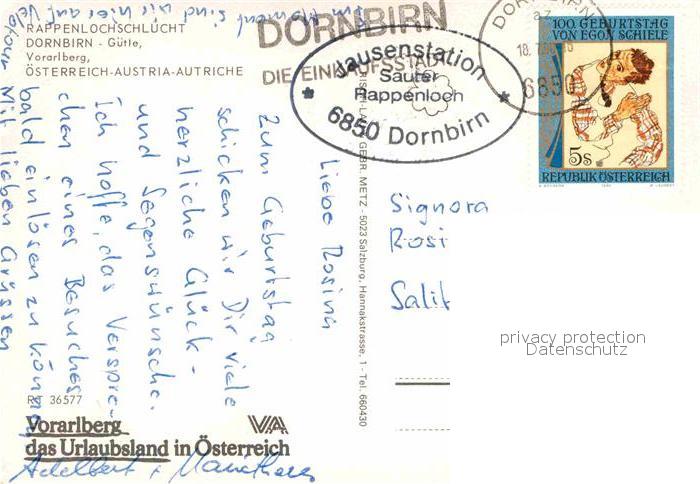 RAPPENLOCHSCHLUCHT
DORNBIRN - Gütle,
Vorarlberg,
ÖSTERREICH-AUSTRIA-AUTRICHE
DORNBIRN
DIE EINKAUFSSTADT
Jausenstation
Sauter
Rappenloch
6850 Dornbirn
DORNBIRN
6850
100. GEBURTSTAG
VON EGON SCHIELE
5s
REPUBLIK ÖSTERREICH
Liebe Rosina
Zum Geburtstag
schicken wir Dir viele
herzliche Glück-
und Segenswünsche.
Ich hoffe, das Verspre-
chen eines Besuches
bald einlösen zu können
Mit lieben Grüssen
Im Moment sind wir hier auf
Adelbert +
Signora
Rosi
Salit
GEBR. METZ - 5023 Salzburg, Hannakstrasse, 1 - Tel. 660430
privacy protection
Datenschutz
RT 36577
Vorarlberg VA
das Urlaubsland in Österreich